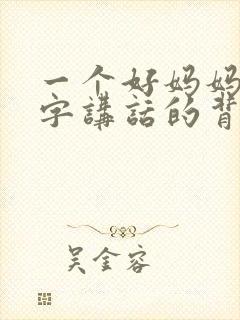 一个好妈妈
字講話的背
吴金容